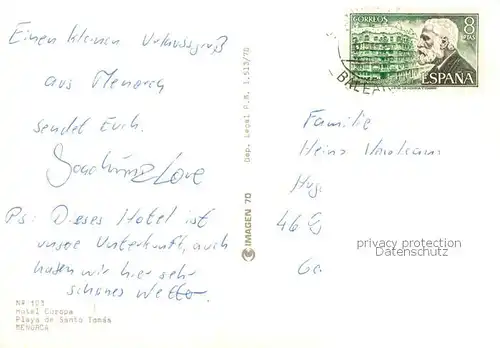 Einen kleinen Urlaussgruß
aus Menorca
sendet Euch.
Joachim & Love
Ps: Dieses Hotel ist
unsere Unterkunft, auch
haben wir hier sehr
schönes Wetter.
Nº 103
Hotel Europa
Playa de Santo Tomás
MENORCA
IMAGEN 70 Dep. Legal P.M. 1.513/70
CORREOS 8
PTAS
ESPAÑA
BALEAR
Familie
Heinz
46
privacy protection
Datenschutz